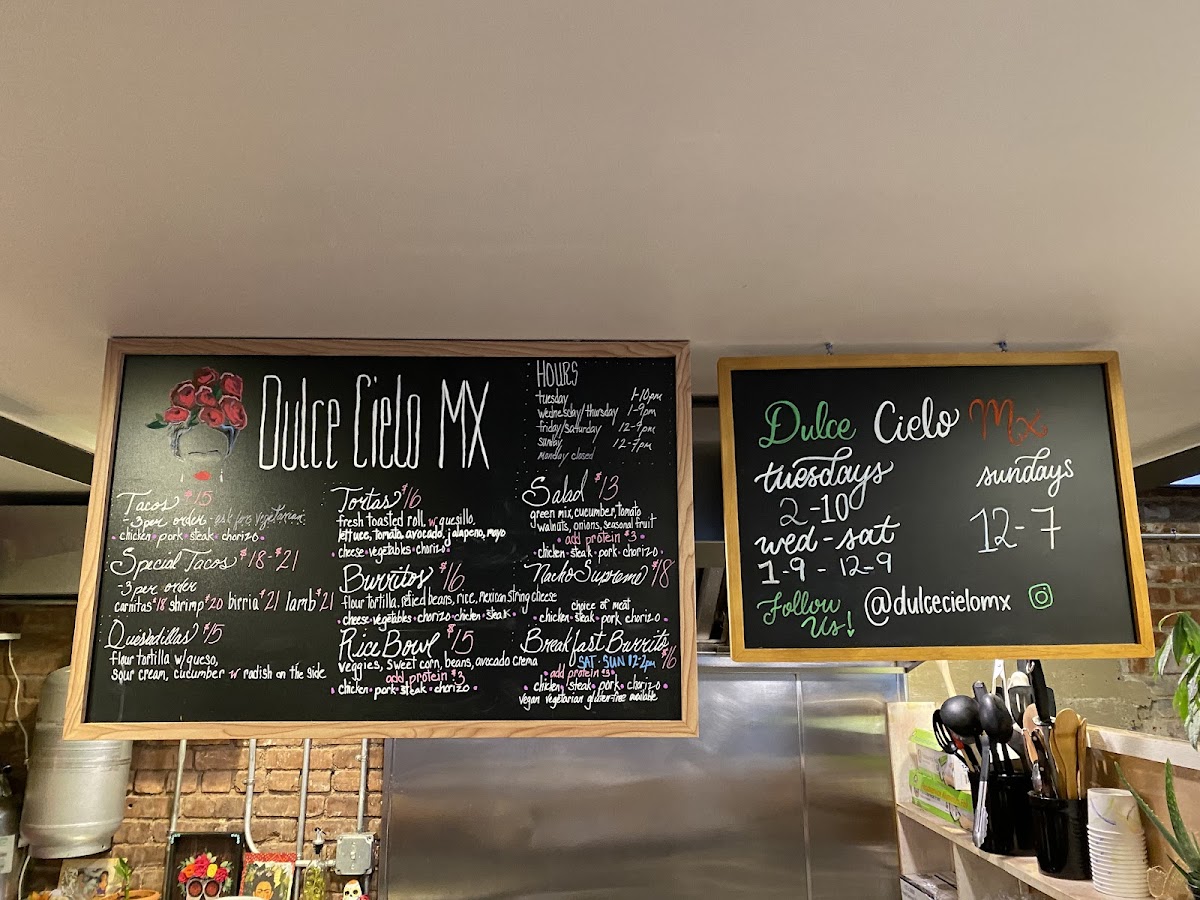 Dulce Cielo MX
HOURS
tuesday 1-10pm
wednesday/thursday 1-9pm
friday/saturday 12-9pm
sunday 12-7pm
monday closed
Tacos $15
-3 per order - ask for vegetarian
• chicken • pork • steak • chorizo •
Special Tacos $18-$21
-3 per order
carnitas $18 shrimp $20 birria $21 lamb $21
Quesadillas $15
flour tortilla w/queso,
sour cream, cucumber w radish on the side
Tortas $16
fresh toasted roll w quesillo,
lettuce, tomato, avocado, jalapeno, mayo
• cheese • vegetables • chorizo •
Burritos $16
flour tortilla, refied beans, rice, Mexican string cheese
• cheese • vegetables • chorizo • chicken • steak •
Rice Bowl $15
veggies, sweet corn, beans, avocado crema
• add protein $3 •
• chicken • pork • steak • chorizo •
Salad $13
green mix, cucumber, tomato
walnuts, onions, seasonal fruit
• add protein $3 •
• chicken • steak • pork • chorizo •
Nacho Supreme $18
choice of meat
• chicken • steak • pork • chorizo •
Breakfast Burrito $16
SAT • SUN 12-2pm
• add protein $3 •
• chicken • steak • pork • chorizo •
vegan vegetarian gluten-free available
Dulce Cielo Mx
tuesdays
2-10
wed-sat
1-9 - 12-9
sundays
12-7
Follow
Us!
@dulcecielomx